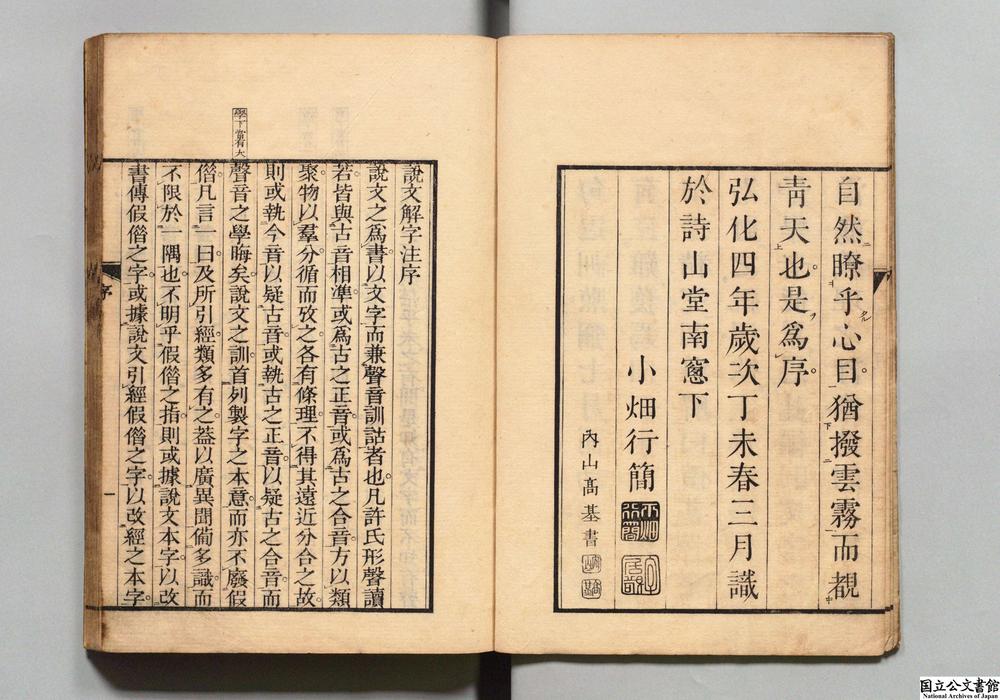 自然瞭乎心目猶撥雲霧而覩
靑天也是爲序
弘化四年歲次丁未春三月識
於詩山堂南窻下
小畑行簡
內山高基書
說文解字注序
說文之爲書以文字而兼聲音訓詁者也凡許氏形聲讀
若皆與古音相準或爲古之正音或爲古之合音方以類
聚物以羣分循而攷之各有條理不得其遠近分合之故
則或執今音以疑古音或執古之正音以疑古之合音而
學下當有大
聲音之學晦矣說文之訓首列製字之本意而亦不廢假
借凡言一曰及所引經類多有之葢以廣異聞僃多識而
不限於一隅也不明乎假借之指則或據說文本字以改
書傳假借之字或據說文引經假借之字以改經之本字
序
一
国立公文書館
National Archives of Japan